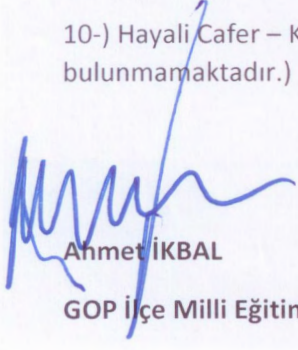 10-) Hayali Cafer – K
bulunmamaktadır.)
Ahmet İKBAL
GOP İlçe Milli Eğitim